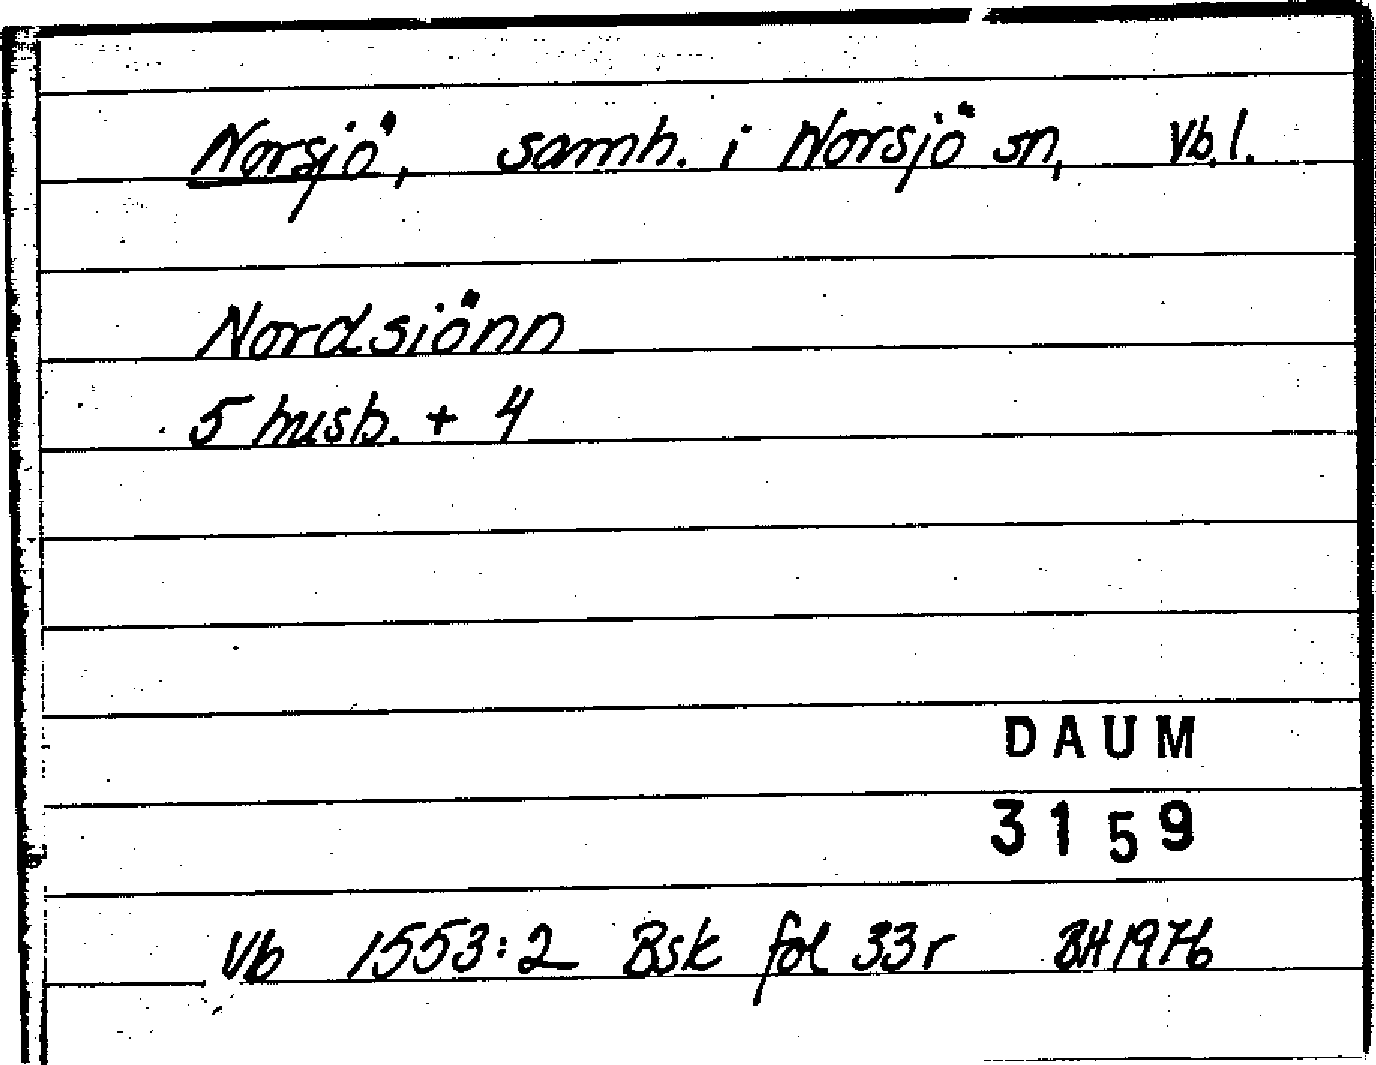 Norsjö, samh. i Norsjö sn, Vb.l.
Nordsiönn
5 husb. + 4
DAUM
3159
Vb 1553:2 Bsk fol 33r BH 1976